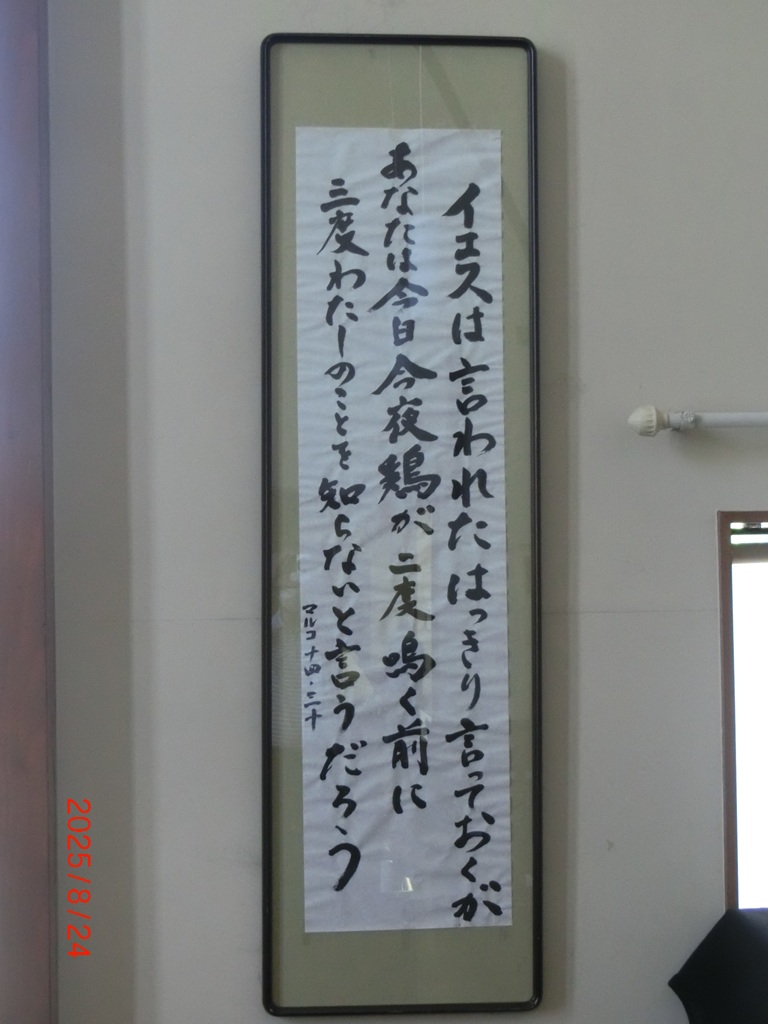 イエスは言われたはっきり言っておくが
あなたは今日今夜鶏が二度鳴く前に
三度わたしのことを知らないと言うだろう
マルコ十四・三十
2025/8/24